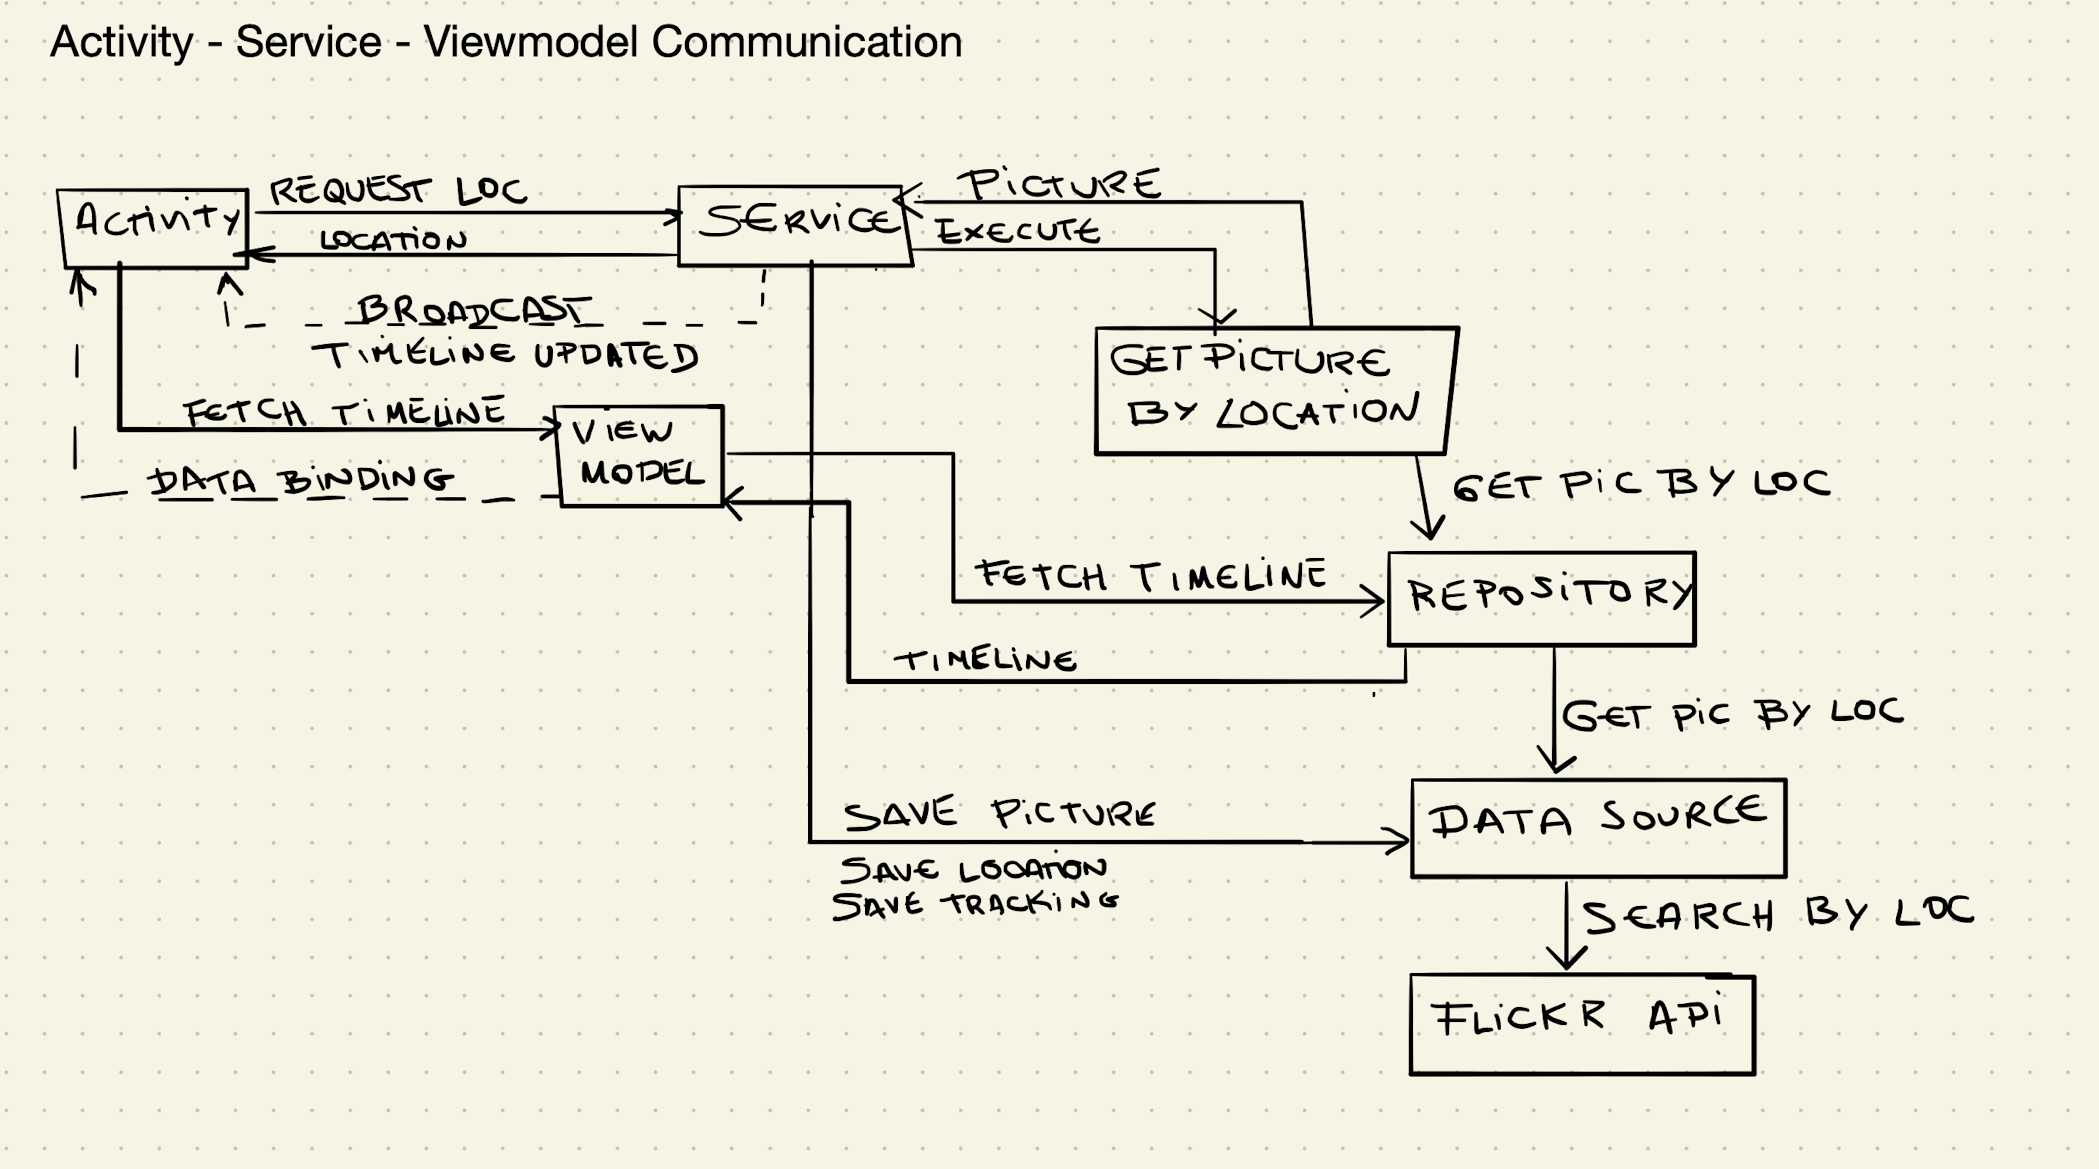 Activity - Service - Viewmodel Communication
REQUEST LOC
PiCTURE
Activity
SERViCE
LOCATION
EXECUTE
BROADCAST
TIMELINE UPDATED
GET PiCTURE
BY LOCATION
FETCH TiMELINE
VIEW
MODEL
DATA BiNDiNG
GET PiC BY LOC
FETCH TIMELINE
REPOSiTORY
TIMELiNE
GET PiC BY LOC
SAVE PiCTURE
DATA SOURCE
SAVE LOCATION
SAVE TRACKiNG
SEARCH BY LOC
FLiCKR APi